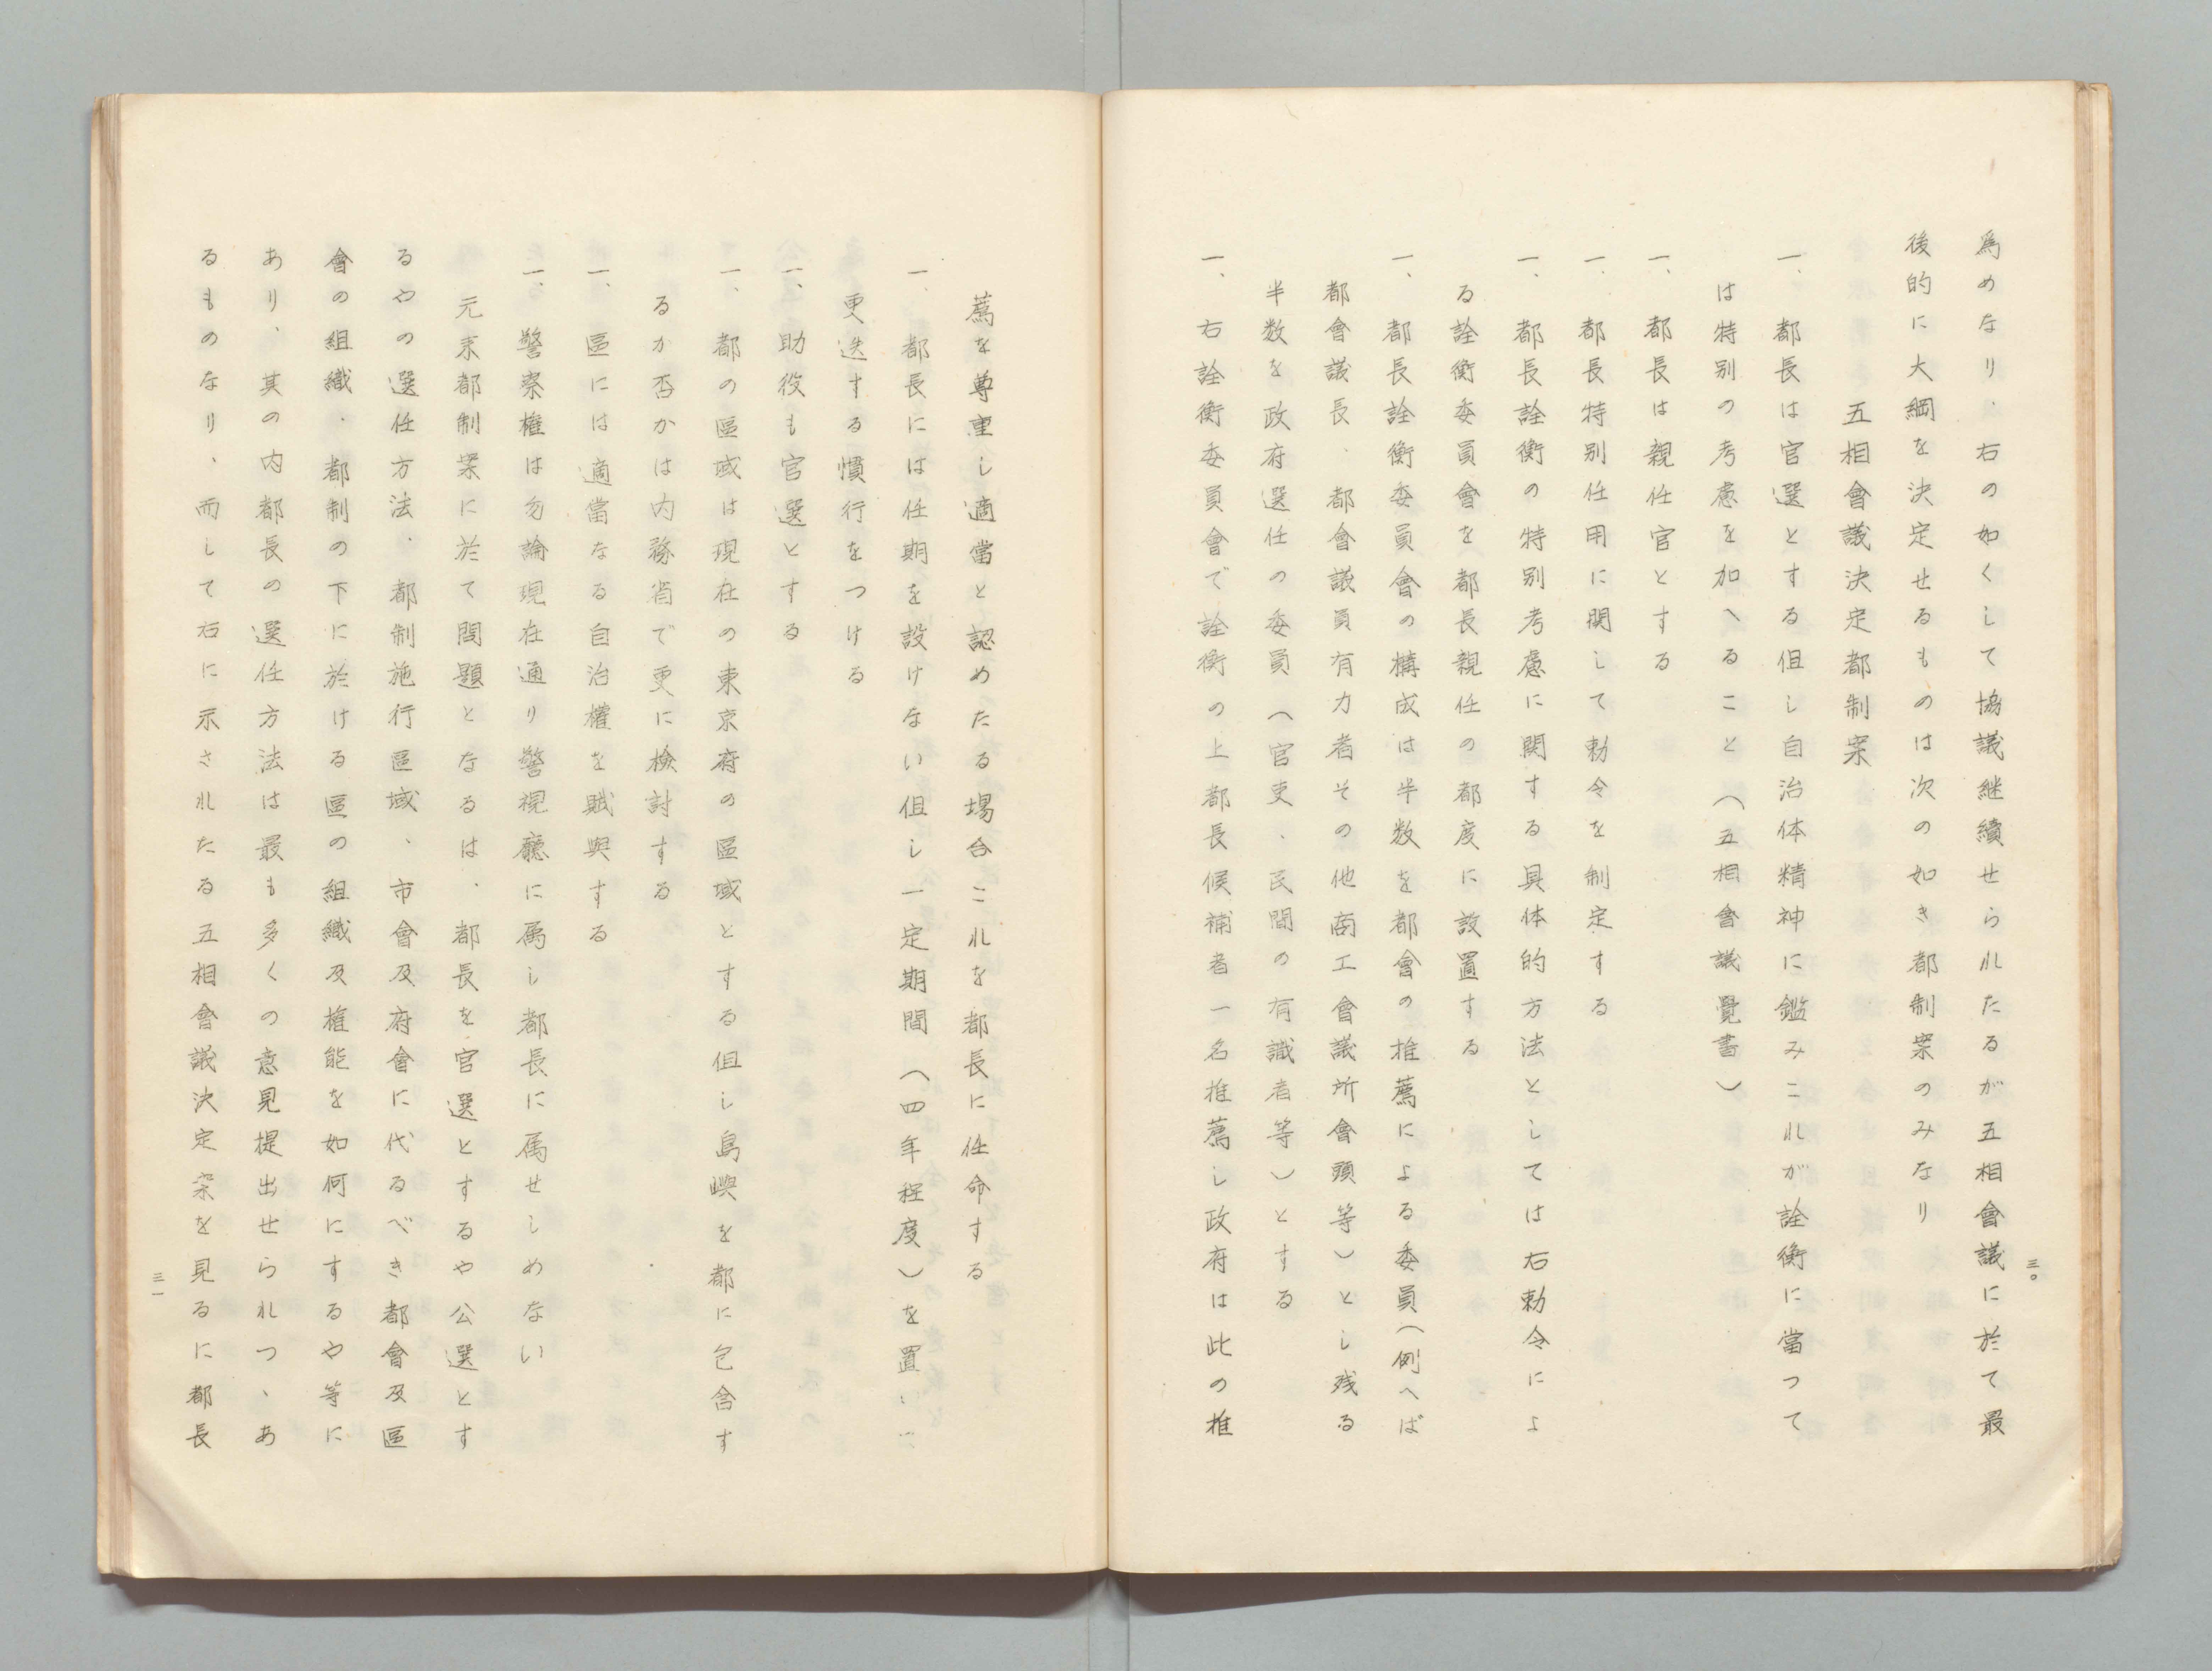 三〇
爲めなり、右の如くして協議継續せられたるが五相會議に於て最
後的に大綱を決定せるものは次の如き都制案のみなり
五相會議決定都制案
一、都長は官選とする但し自治体精神に鑑みこれが詮衡に當つて
は特別の考慮を加へること（五相會議覺書）
一、都長は親任官とする
一、都長特別任用に関して勅令を制定する
一、都長詮衡の特別考慮に関する具体的方法としては右勅令によ
る詮衡委員會を都長親任の都度に設置する
一、都長詮衡委員會の構成は半数を都會の推薦による委員（例へば
都會議長、都會議員有力者その他商工會議所會頭等）とし残る
半数を政府選任の委員（官吏、民間の有識者等）とする
一、右詮衡委員會で詮衡の上都長候補者一名推薦し政府は此の推
薦を尊重し適當と認めたる場合これを都長に任命する
一、都長には任期を設けない但し一定期間（四年程度）を置いて
更迭する慣行をつける
一、助役も官選とする
一、都の區域は現在の東京府の區域とする但し島嶼を都に包含す
るか否かは内務省で更に檢討する
一、區には適當なる自治權を賦與する
一、警察權は勿論現在通り警視廳に屬し都長に屬せしめない
元来都制案に於て問題となるは、都長を官選とするや公選とす
るやの選任方法、都制施行區域、市會及府會に代るべき都會及區
會の組織、都制の下に於ける區の組織及権能を如何にするや等に
あり、其の内都長の選任方法は最も多くの意見提出せられつゝあ
るものなり、而して右に示されたる五相會議決定案を見るに都長
三一